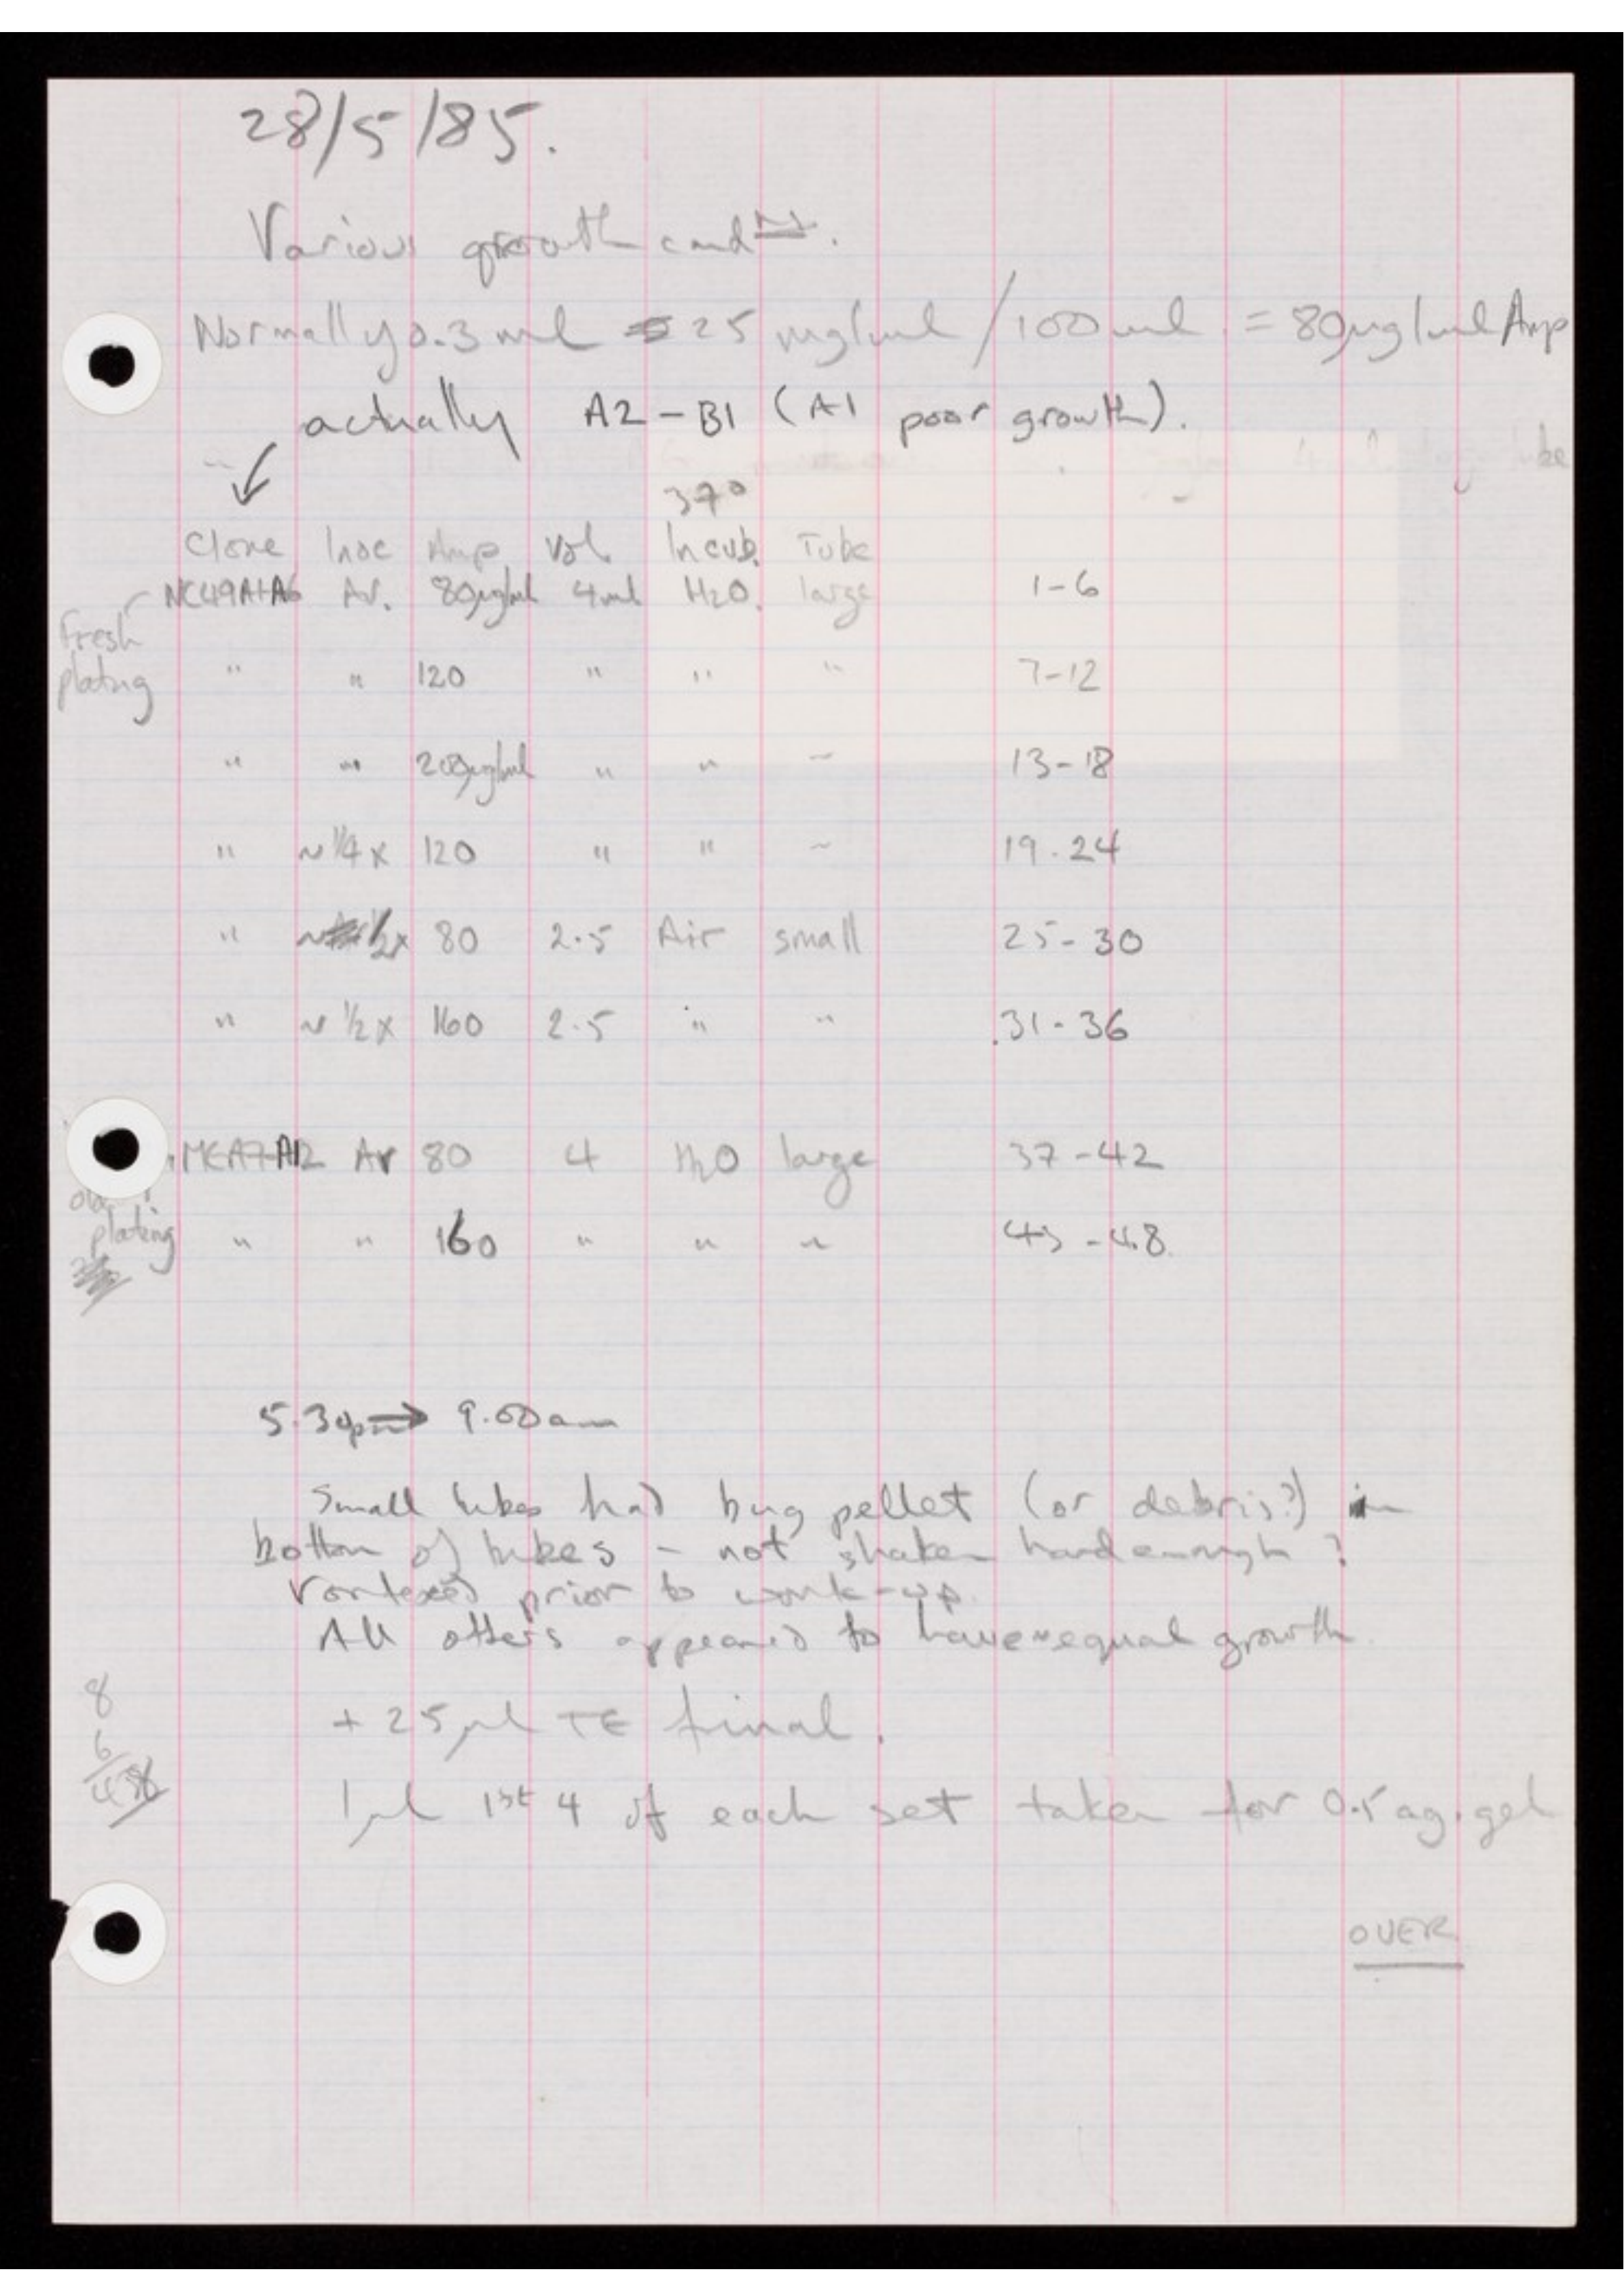 28/5/85.
Various growth condns.
Normally 0.3 ml 25 mg/ml / 100 ml = 80µg/ml Amp
actually A2-B1 (A1 poor growth).
37°
Clone Inoc Amp Vol Incub. Tube
NC49A1-A6 Av. 80µg/ml 4ml H2O. large 1-6
Fresh
plating " " 120 " " " 7-12
" " 200µg/ml " " " 13-18
" ~1/4x 120 " " " 19-24
" ~1/2x 80 2.5 Air small 25-30
" ~1/2x 160 2.5 " " 31-36
A7-A12 Av 80 4 H2O large 37-42
old
plating " " 160 " " " 43-48
5.30pm → 9.00am
Small tubes had bug pellet (or debris?) in
bottom of tubes - not shaken hard enough?
Vortexed prior to work-up.
All others appeared to have ~equal growth
8
6
48
+ 25µl TE final.
1µl 1st 4 of each set taken for 0.5 ag. gel
OVER